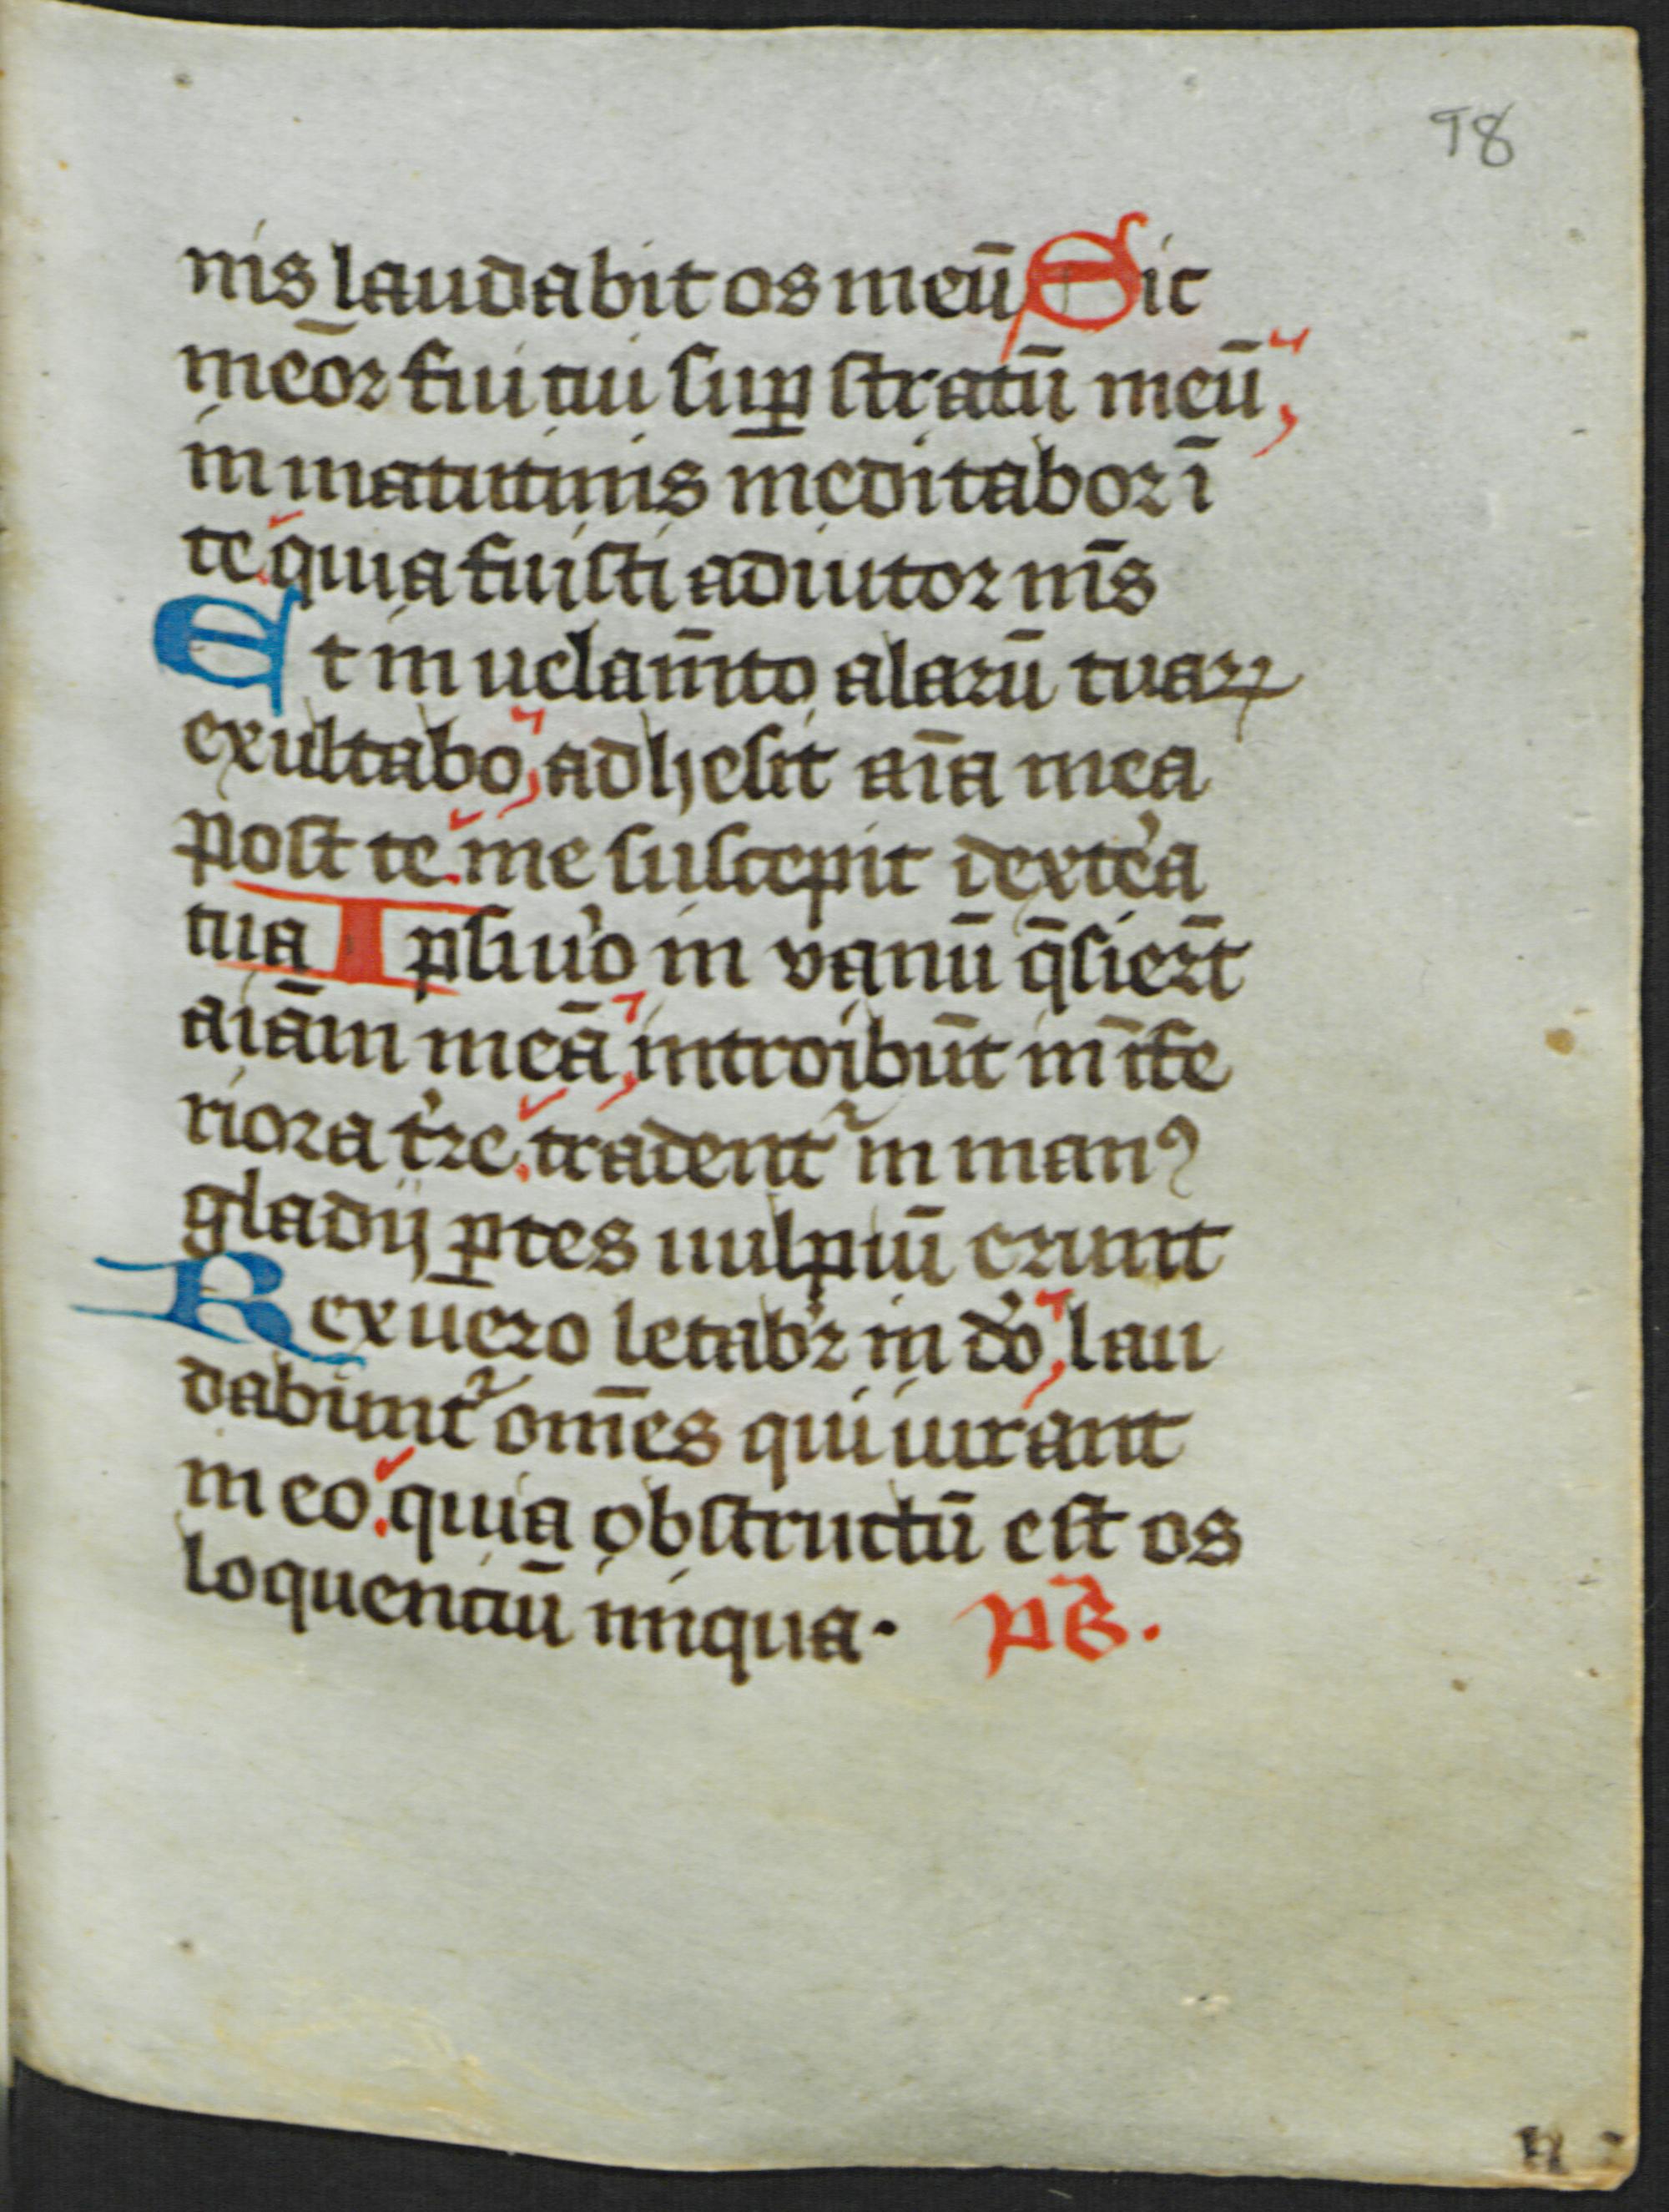 98
nis laudabit os meū Sic
meōr fui tui suꝑ stratū meū
in matutinis meditabor ī
te quia fuisti adiutor m̄s
Et in uelam̄to alarū tuaꝝ
exultabo adhesit aīa mea
post te me suscepit dexte᾽a
tua Ipsi uo᾽ in vanū q̄sier̄t
aīam meā introibūt in īfe
riora t᾽re tradent᷑ in manꝰ
gladij ꝑtes uulpiū erunt
Rex uero letab᾽r in do᾽ lau
dabunt᷑ om̄es qui iurant
in eo quia obstructū est os
loquentiū iniqua. p̄s.